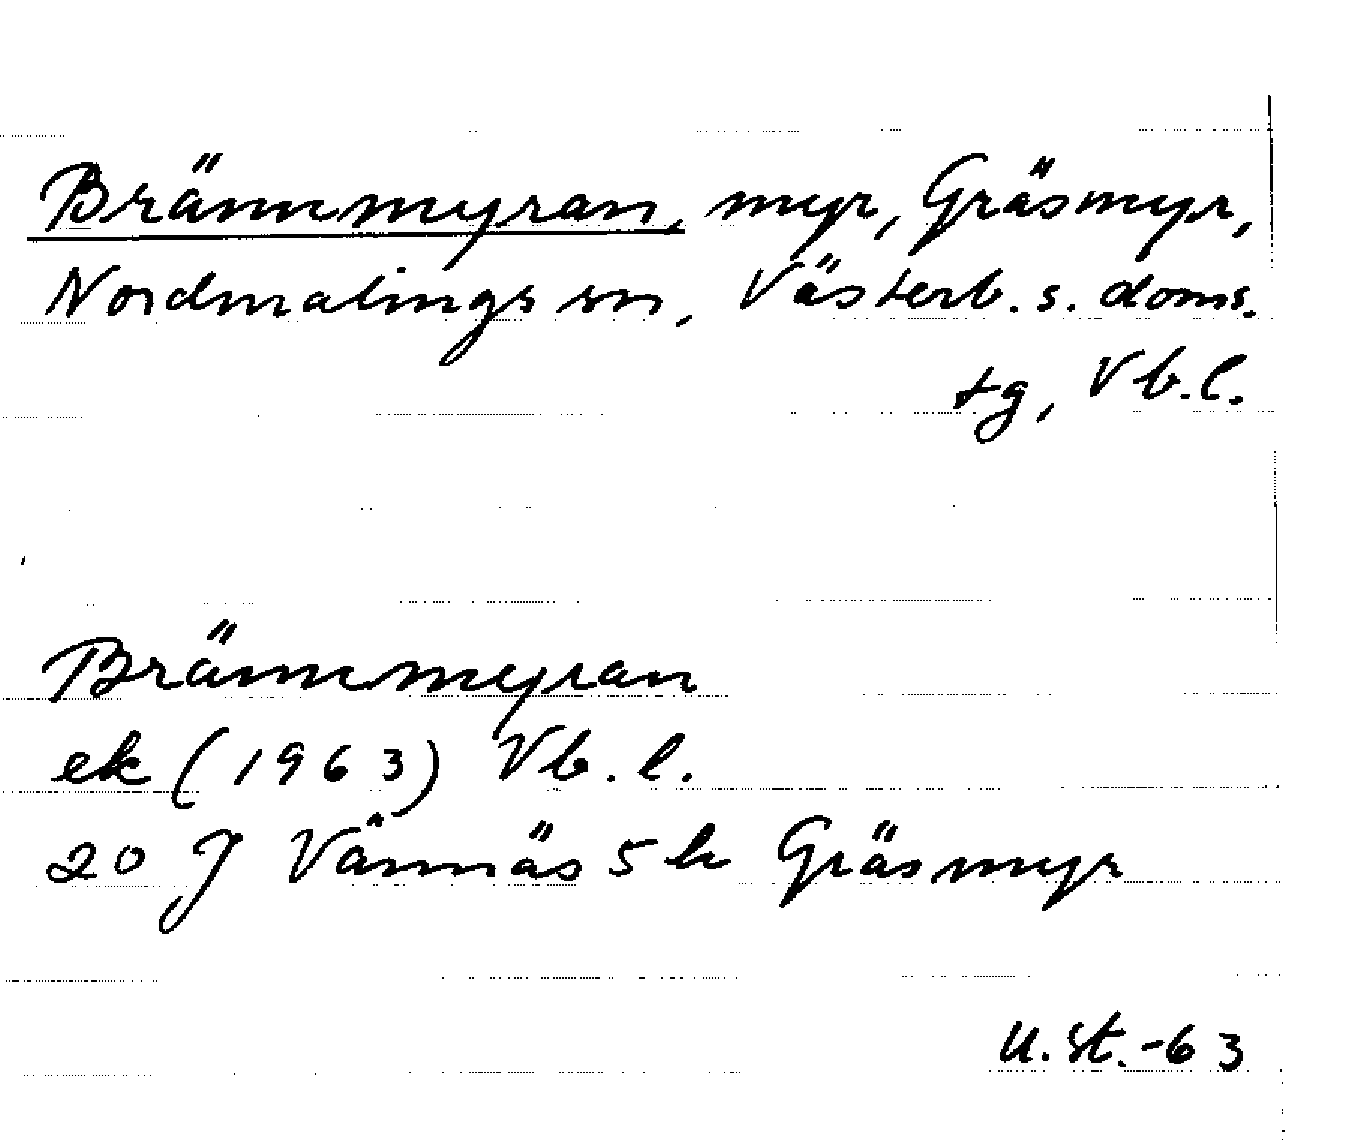 Brännmyran, myr, Gräsmyr,
Nordmalings sn, Västerb. s. doms.
tg, Vb.l.
Brännmyran
ek (1963) Vb.l.
20 J Vännäs 5 h Gräsmyr
U.St.-63